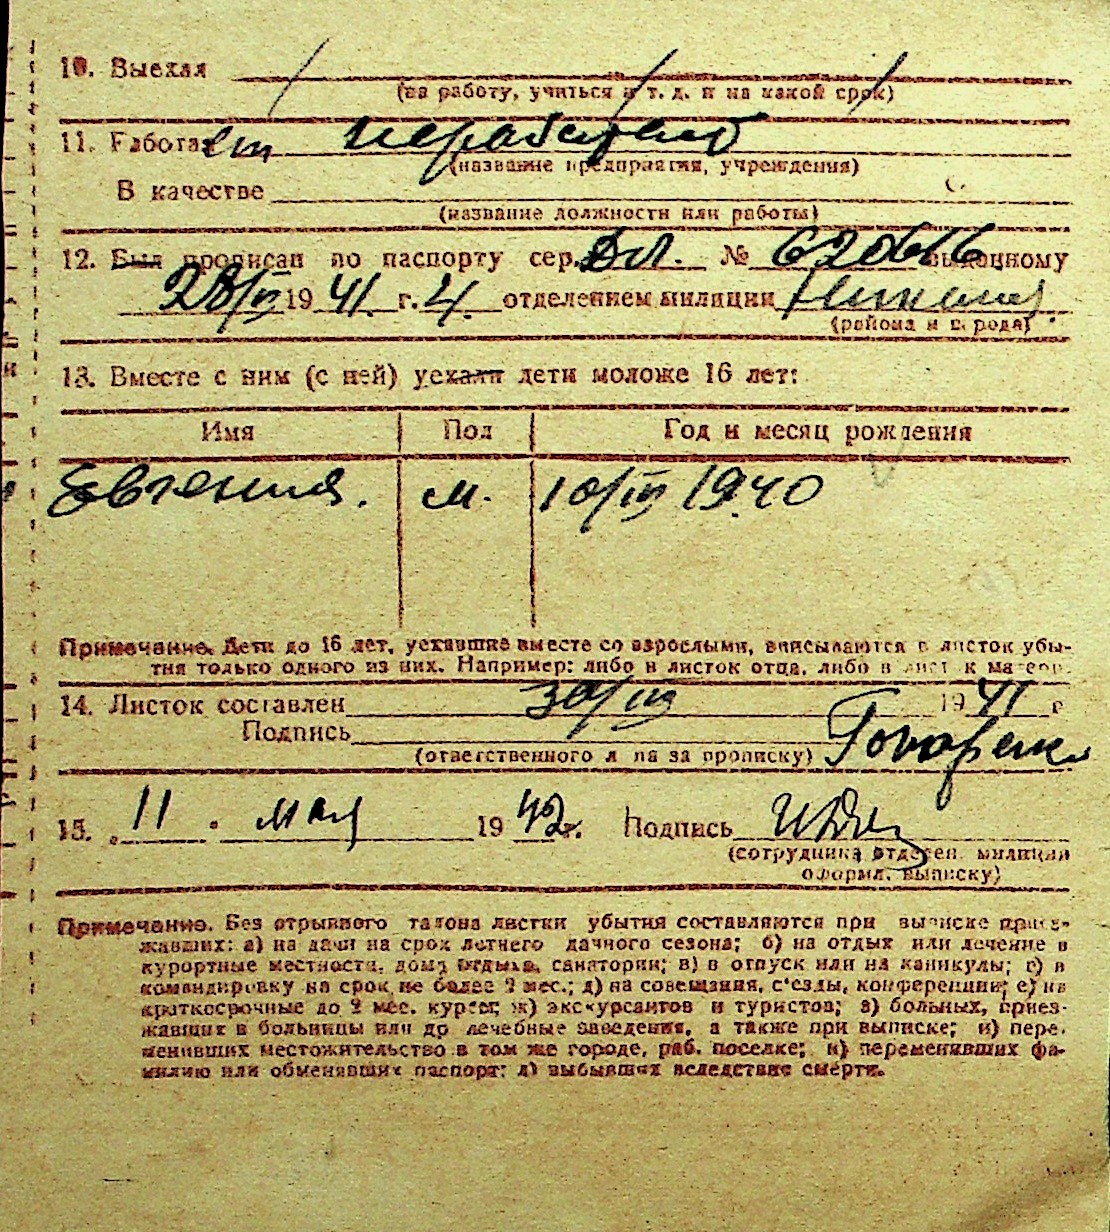 10. Выехал
(на работу, учиться и т. д. и на какой срок)
11. Работает неработает
(название предприятия, учреждения)
В качестве
(название должности или работы)
12. Был прописан по паспорту сер. № выданному
28/III 1941 г. 4. отделением милиции
(района и города)
13. Вместе с ним (с ней) уехали дети моложе 16 лет:
Имя Пол Год и месяц рождения
Евгения. м. 10/III 1940
Примечание. Дети до 16 лет, уехавшие вместе со взрослыми, вписываются в листок убы-
тия только одного из них. Например: либо в листок отца, либо в листок матери.
14. Листок составлен 30/III 1941 г
Подпись
(ответственного лица за прописку)
15. „11" мая 1942 г. Подпись
(сотрудника отделен. милиции
оформл. выписку)
Примечание. Без отрывного талона листки убытия составляются при выписке приез-
жавших: а) на дачи на срок летнего дачного сезона; б) на отдых или лечение в
курортные местности, дома отдыха, санатории; в) в отпуск или на каникулы; г) в
командировку на срок не более 2 мес.; д) на совещания, с'езды, конференции; е) на
краткосрочные до 2 мес. курсы; ж) экскурсантов и туристов; з) больных, приез-
жавших в больницы или др лечебные заведения, а также при выписке; и) пере-
менивших местожительство в том же городе, раб. поселке; к) переменивших фа-
милию или обменявших паспорт; л) выбывших вследствие смерти.